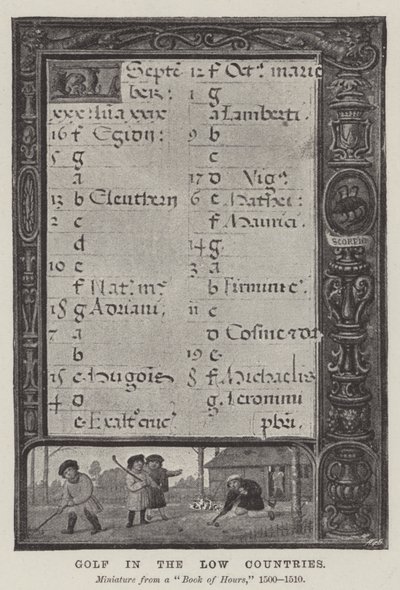 KL Septē
ber:
xxx: lūa xxix
16 f Egidii:
5 g
a
13 b Eleutherii
2 c
d
10 e
f Nat: mē
18 g Adriani:
7 a
b
15 c Hugonis
4 d
e Exalt cruc
12 f Oct: marie
1 g
a Lamberti.
9 b
c
17 d Vigˢ:
6 e Mathei:
f Maurici.
14 g
3 a
b Firmini c:
11 c
d Cosme et da
19 e
8 f Michaelis
g Ieronimi
pbri.
SCORPIO
GOLF IN THE LOW COUNTRIES.
Miniature from a "Book of Hours," 1500–1510.